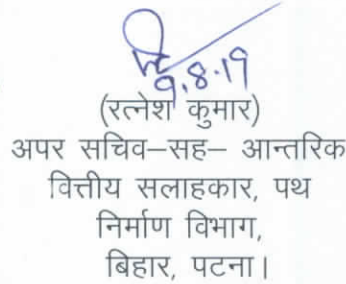 9.8.19
(रत्नेश कुमार)
अपर सचिव–सह– आन्तरिक
वित्तीय सलाहकार, पथ
निर्माण विभाग,
बिहार, पटना।